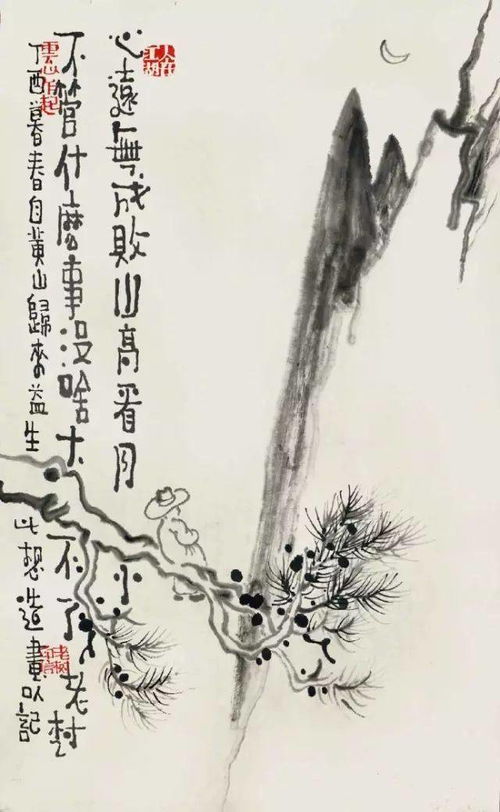 人在江湖
心遠無成敗山高看月小
不管什麼事没啥大不了老
丁酉暮春自黄山歸來益生此想造畫以記